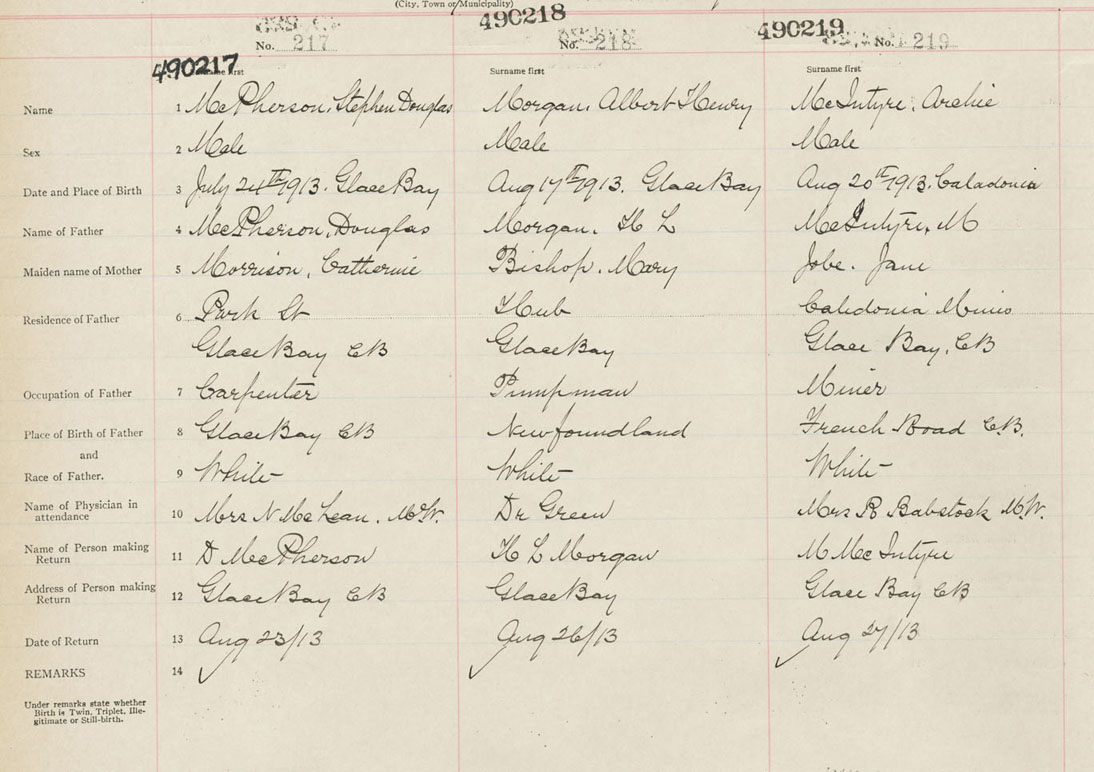 (City, Town or Municipality)
490218
490219
No. 217
No. 218
No. 219
490217
Surname first
Surname first
Surname first
Name 1 McPherson, Stephen Douglas Morgan, Albert Henry McIntyre, Archie
Sex 2 Male Male Male
Date and Place of Birth 3 July 24th 1913. Glace Bay Aug 17th 1913. Glace Bay Aug 20th 1913. Caladonia
Name of Father 4 McPherson, Douglas Morgan. H L McIntyre, M
Maiden name of Mother 5 Morrison, Catherine Bishop. Mary Jobe. Jane
Residence of Father 6 Park St Hub Caledonia Mines
Glace Bay CB Glace Bay Glace Bay, CB
Occupation of Father 7 Carpenter Pumpman Miner
Place of Birth of Father 8 Glace Bay CB Newfoundland French Road C.B.
and
Race of Father. 9 White White White
Name of Physician in
attendance 10 Mrs N McLean. M.W. Dr Green Mrs R Babstock M.W.
Name of Person making
Return 11 D McPherson H L Morgan M McIntyre
Address of Person making
Return 12 Glace Bay CB Glace Bay Glace Bay CB
Date of Return 13 Aug 23/13 Aug 26/13 Aug 27/13
REMARKS 14
Under remarks state whether
Birth is Twin, Triplet, Ille-
gitimate or Still-birth.